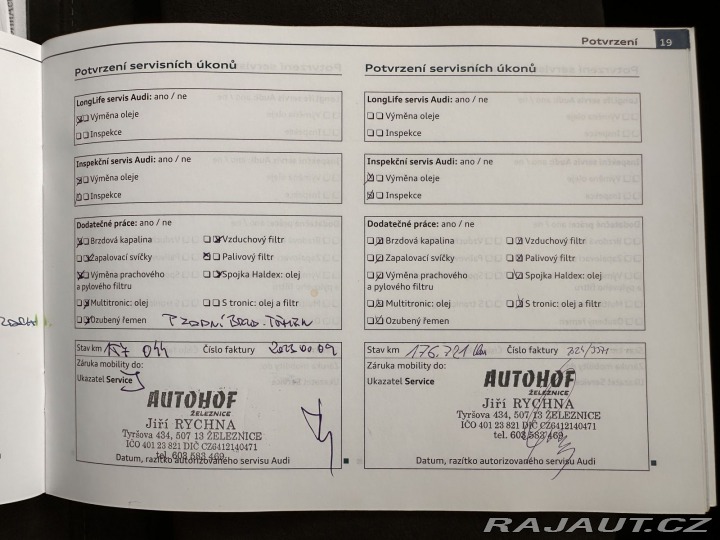 Potvrzení 19
Potvrzení servisních úkonů
LongLife servis Audi: ano / ne
Výměna oleje
Inspekce
Inspekční servis Audi: ano / ne
Výměna oleje
Inspekce
Dodatečné práce: ano / ne
Brzdová kapalina Vzduchový filtr
Zapalovací svíčky Palivový filtr
Výměna prachového Spojka Haldex: olej
a pylového filtru
Multitronic: olej S tronic: olej a filtr
Ozubený řemen
Stav km 157 044 Číslo faktury
Záruka mobility do:
Ukazatel Service
AUTOHOF
ŽELEZNICE
Jiří RYCHNA
Tyršova 434, 507 13 ŽELEZNICE
IČO 401 23 821 DIČ CZ6412140471
tel. 603 583 469
Datum, razítko autorizovaného servisu Audi
Potvrzení servisních úkonů
LongLife servis Audi: ano / ne
Výměna oleje
Inspekce
Inspekční servis Audi: ano / ne
Výměna oleje
Inspekce
Dodatečné práce: ano / ne
Brzdová kapalina Vzduchový filtr
Zapalovací svíčky Palivový filtr
Výměna prachového Spojka Haldex: olej
a pylového filtru
Multitronic: olej S tronic: olej a filtr
Ozubený řemen
Stav km 176.721 km Číslo faktury
Záruka mobility do:
Ukazatel Service
AUTOHOF
ŽELEZNICE
Jiří RYCHNA
Tyršova 434, 507 13 ŽELEZNICE
IČO 401 23 821 DIČ CZ6412140471
tel. 603 583 469
Datum, razítko autorizovaného servisu Audi
RAJAUT.CZ